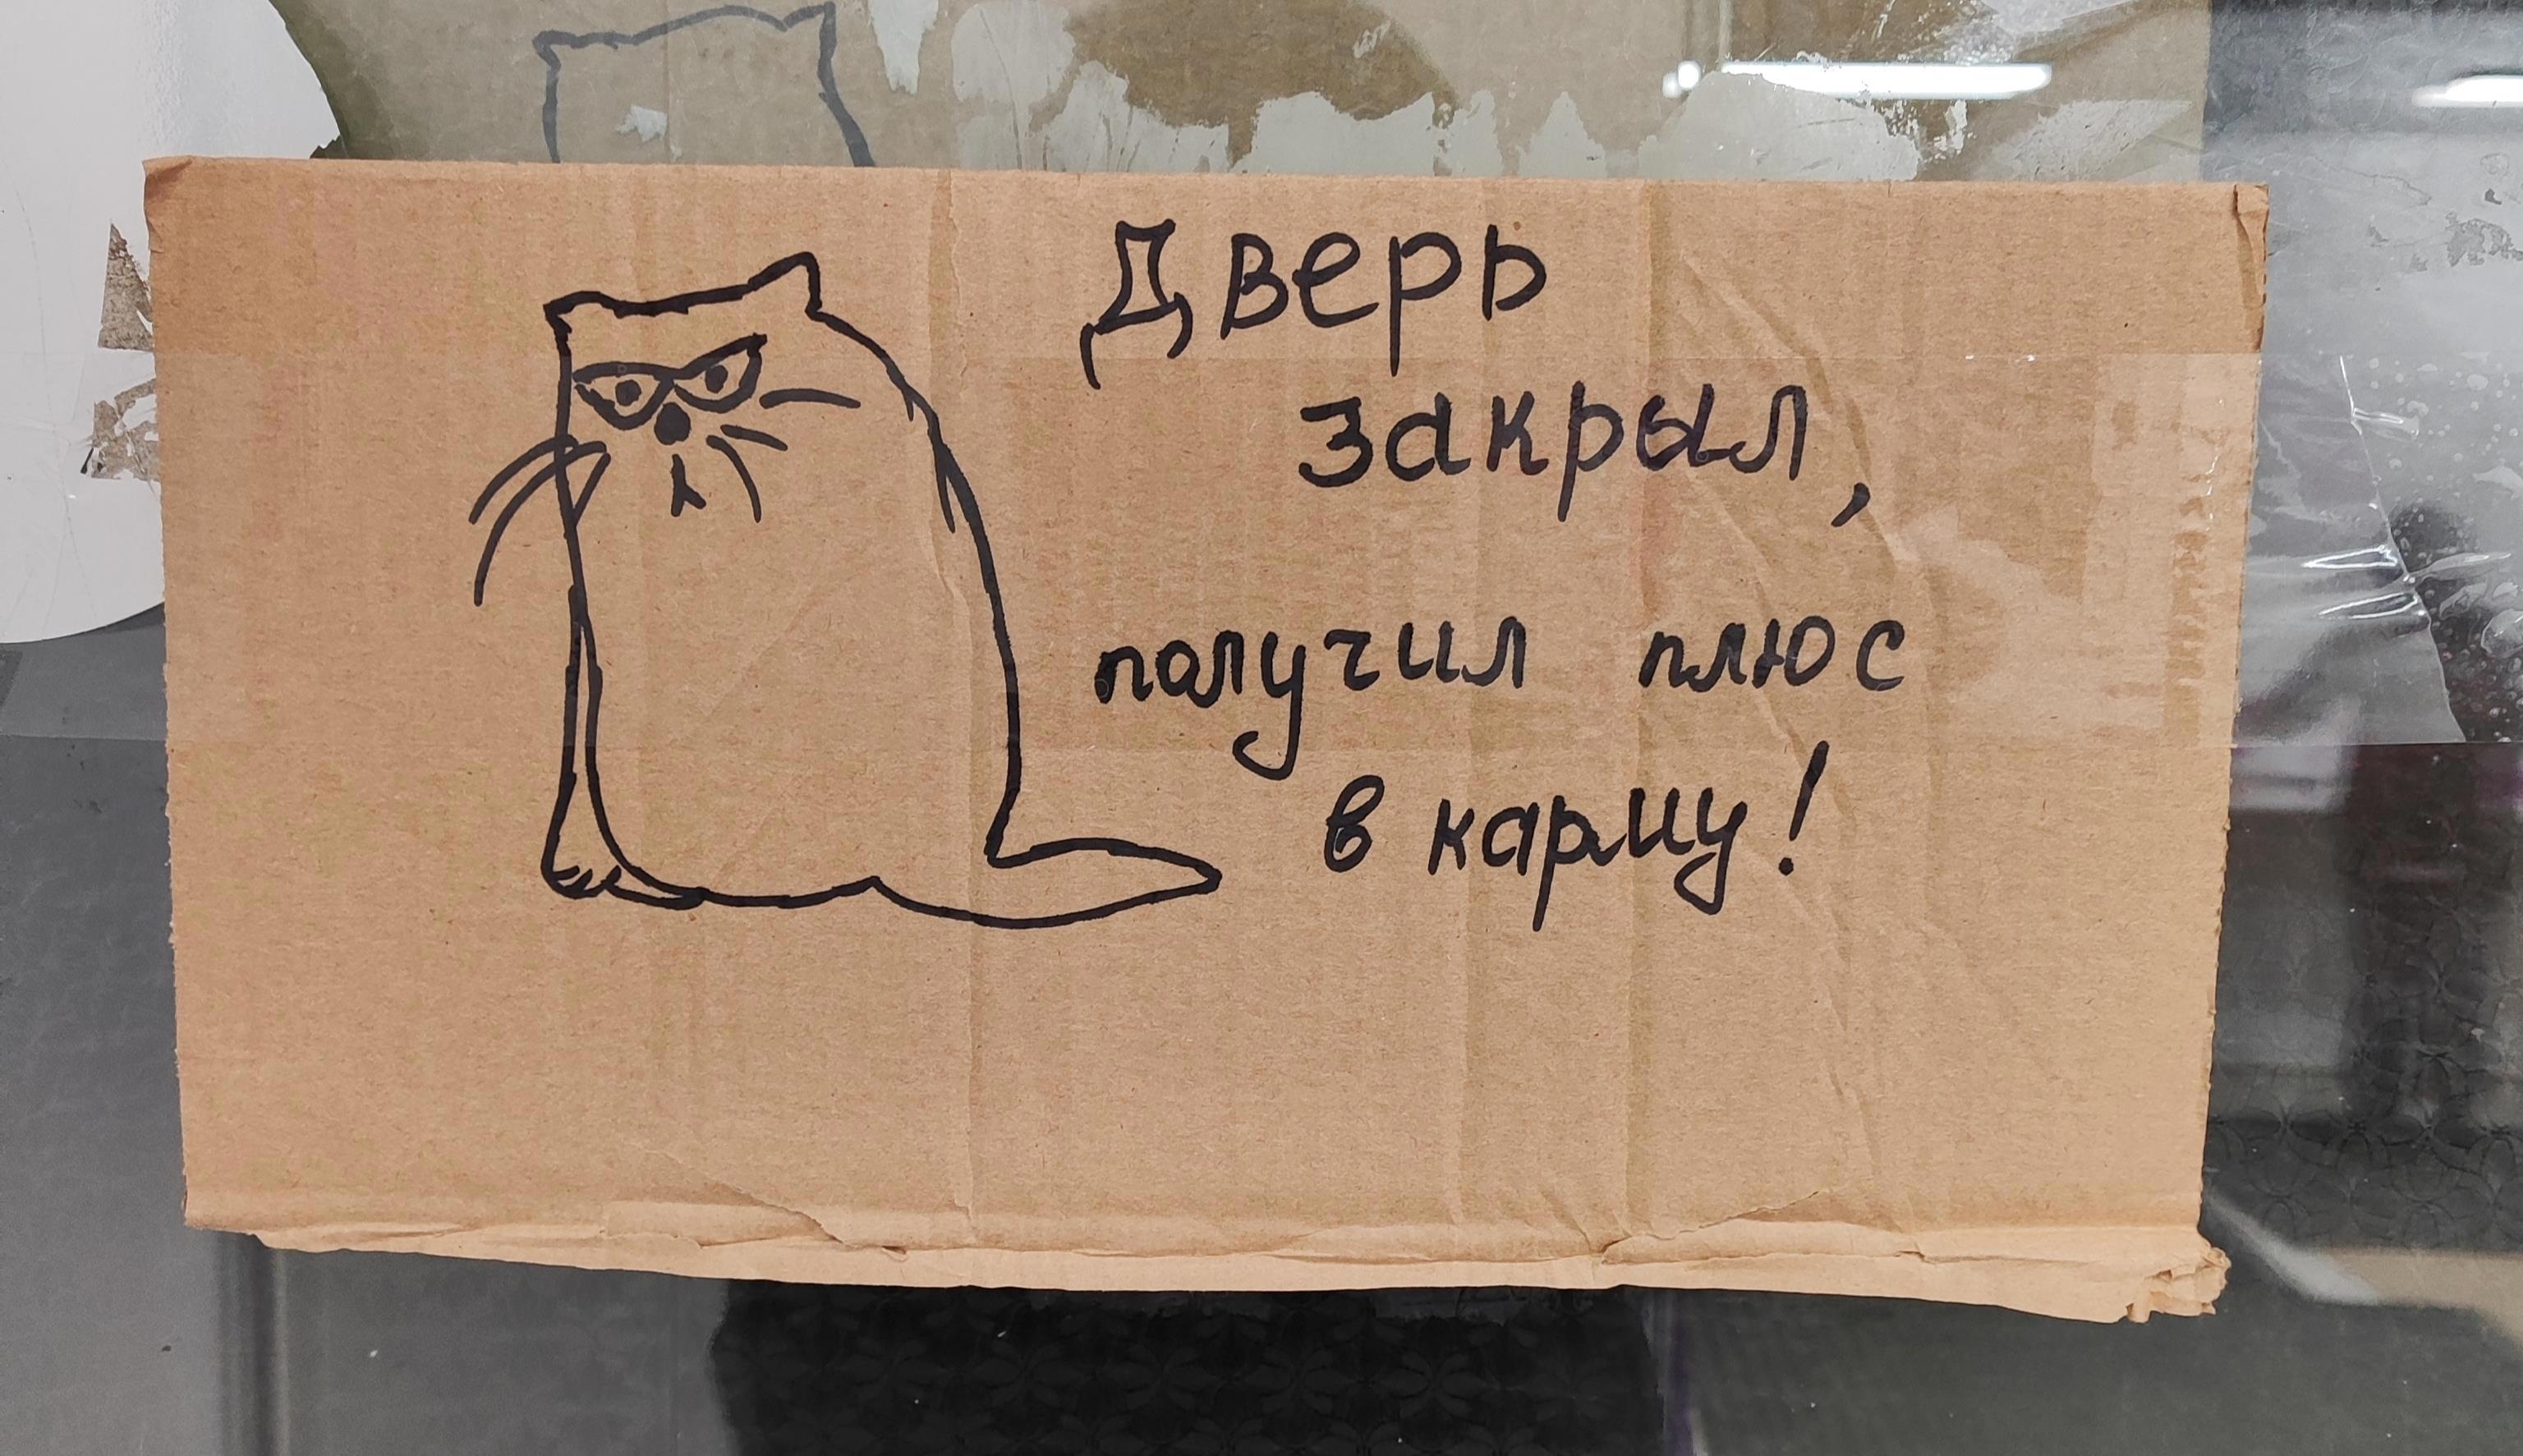 Дверь
закрыл,
получил плюс
в карму!